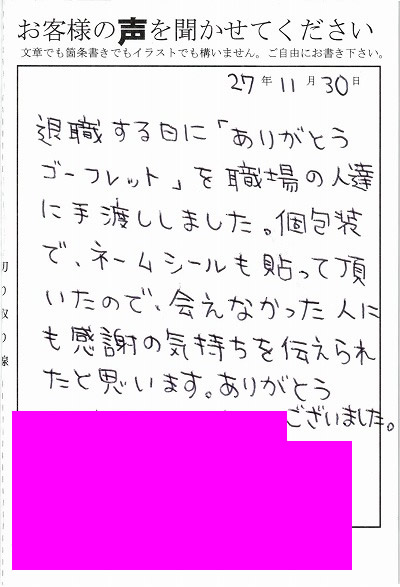 お客様の声を聞かせてください
文章でも箇条書きでもイラストでも構いません。ご自由にお書き下さい。
27年11月30日
退職する日に「ありがとう
ゴーフレット」を職場の人達
に手渡ししました。個包装
で、ネームシールも貼って頂
いたので、会えなかった人に
も感謝の気持ちを伝えられ
たと思います。ありがとう
ございました。
切り取り線